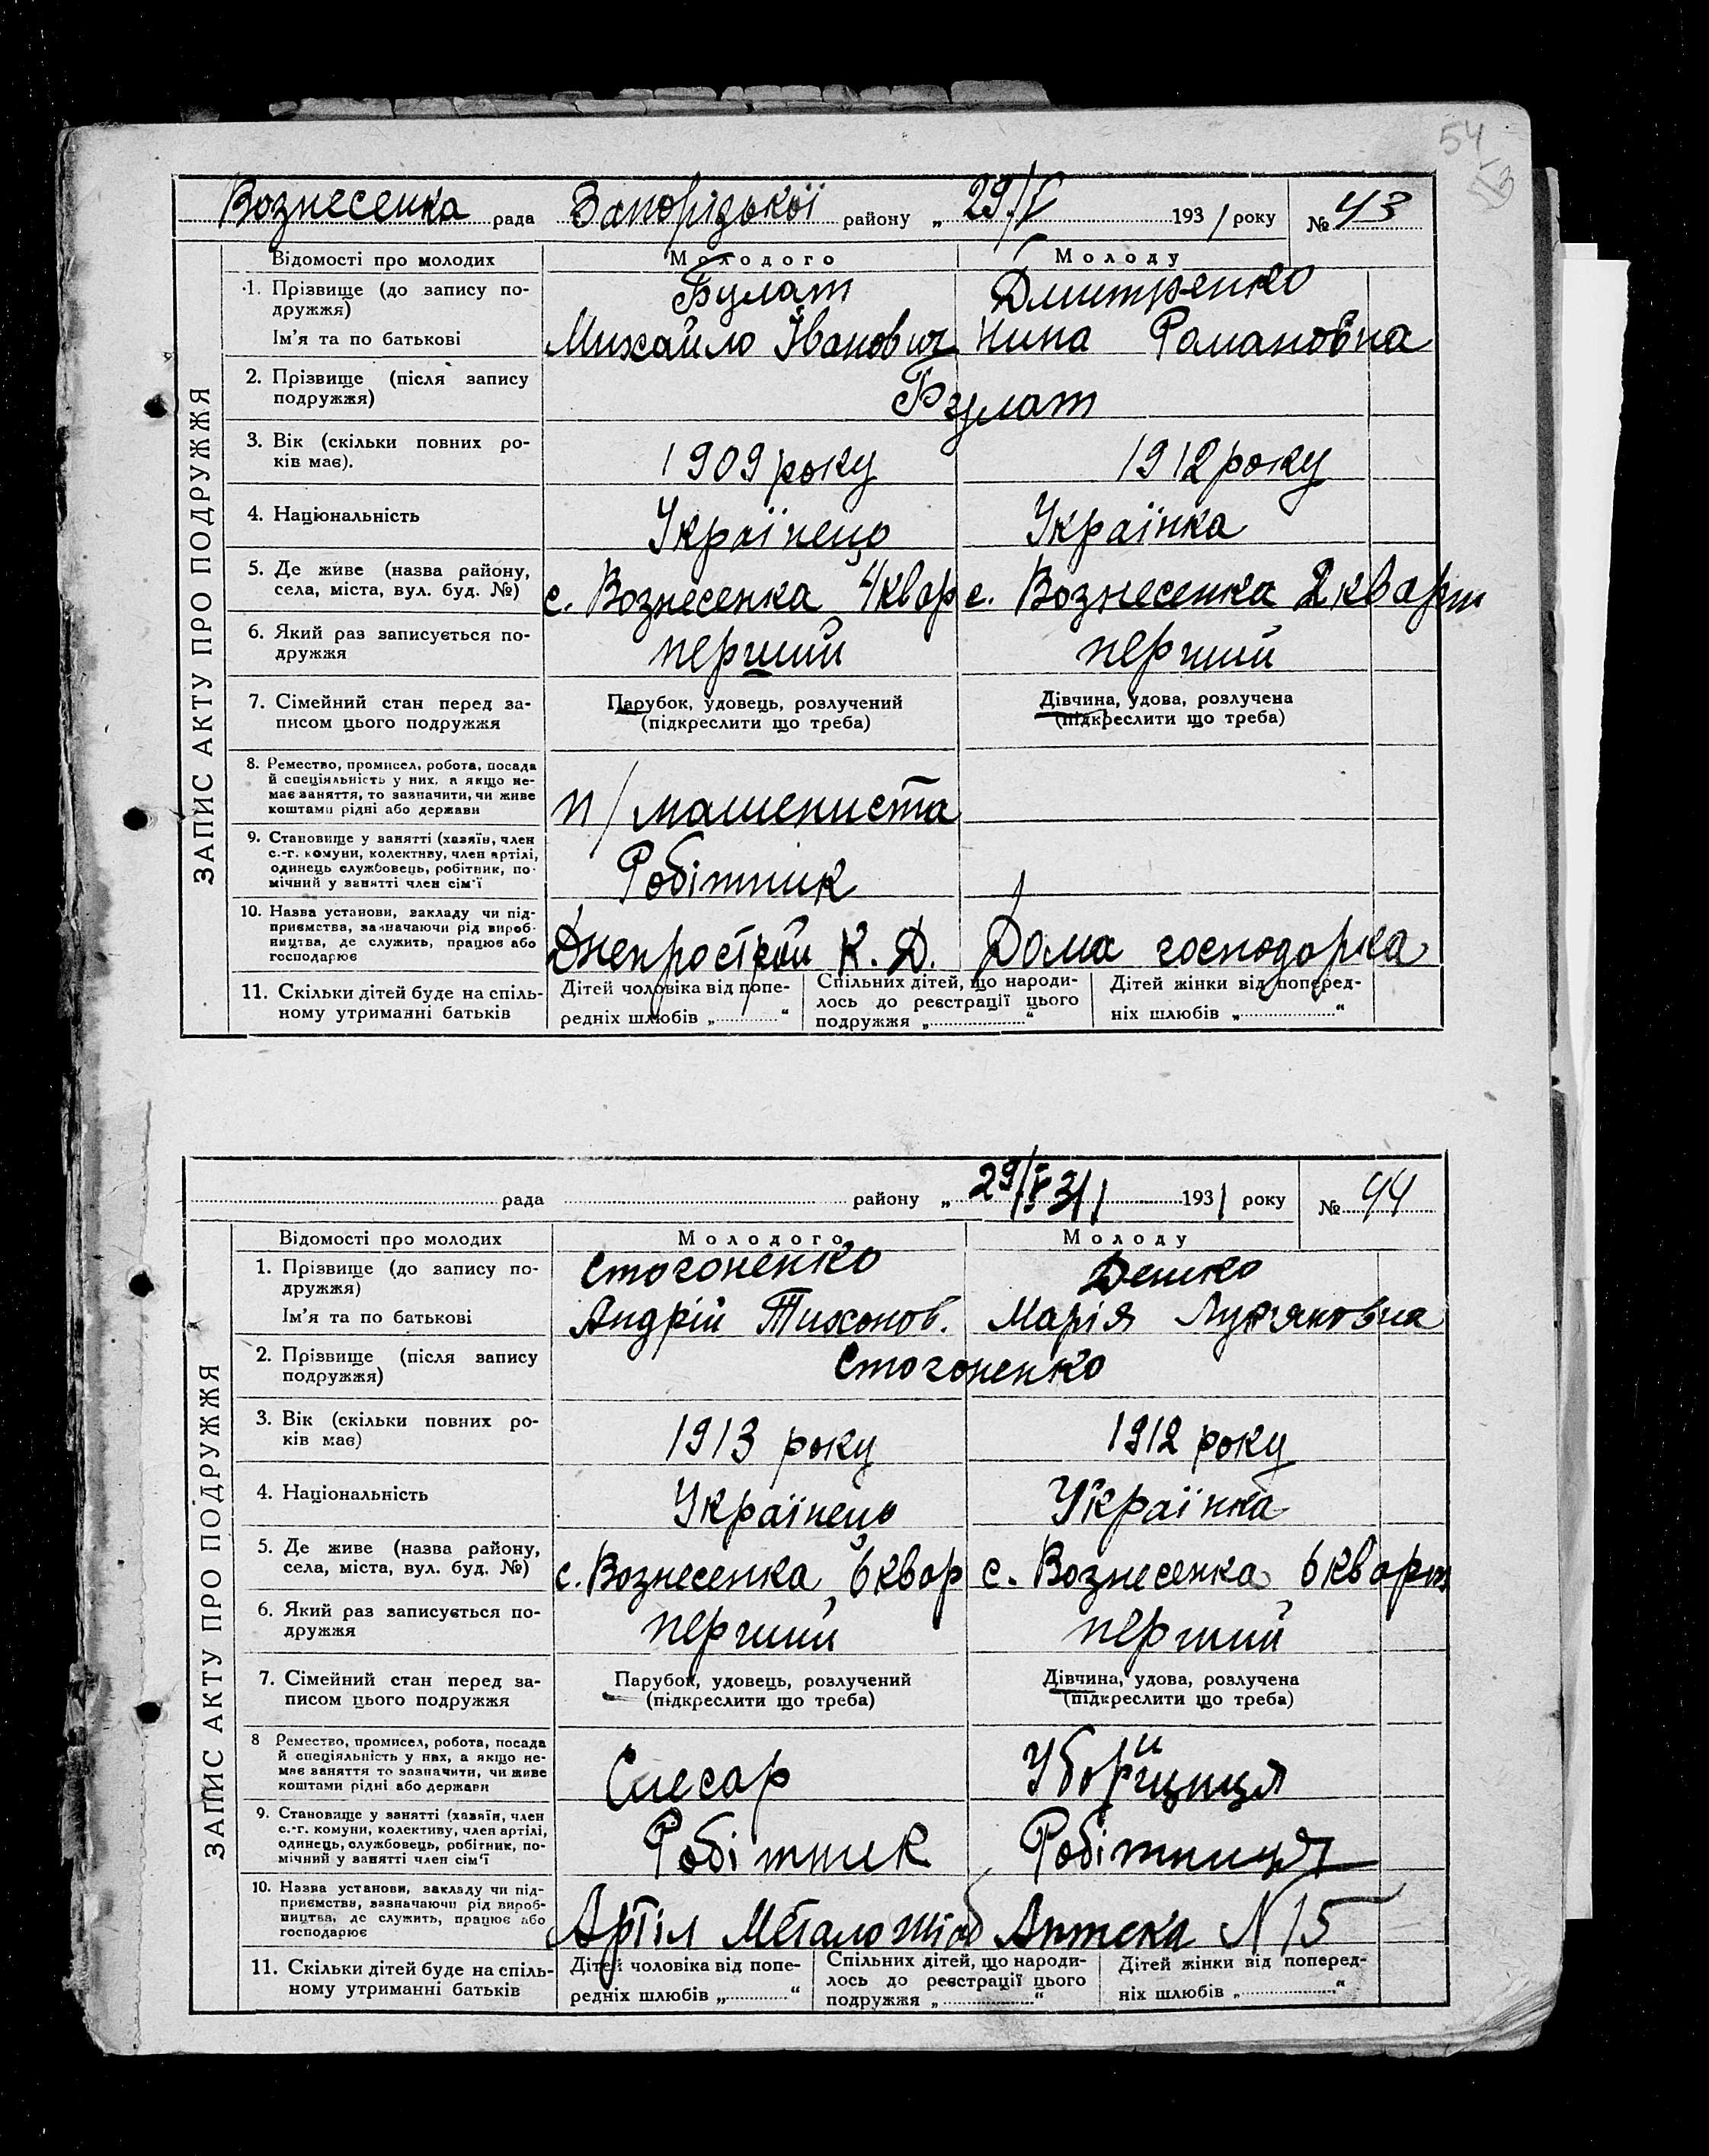 54
53
Вознесенка рада Запорізької району „ 29/V 1931 року № 43
ЗАПИС АКТУ ПРО ПОДРУЖЖЯ
Відомості про молодих Молодого Молоду
1. Прізвище (до запису по- Булат Дмитренко
дружжя)
Ім'я та по батькові Михайло Іванович Нина Романовна
2. Прізвище (після запису
подружжя) Булат
3. Вік (скільки повних ро-
ків має). 1909 року 1912 року
4. Національність Українець Українка
5. Де живе (назва району,
села, міста, вул. буд. №) с. Вознесенка 4 квар с. Вознесенка 2 кварт
6. Який раз записується по-
дружжя перший перший
7. Сімейний стан перед за- Парубок, удовець, розлучений Дівчина, удова, розлучена
писом цього подружжя (підкреслити що треба) (підкреслити що треба)
8. Ремество, промисел, робота, посада
й спеціяльність у них, а якщо не-
має заняття, то зазначити, чи живе
коштами рідні або держави п/машениста
9. Становище у занятті (хазяїн, член
с.-г. комуни, колективу, член артілі,
одинець службовець, робітник, по-
мічний у занятті член сім'ї Робітник
10. Назва установи, закладу чи під-
приємства, зазначаючи рід вироб-
ництва, де служить, працює або
господарює Днепрострой К. Д. Дома господорка
11. Скільки дітей буде на спіль- Дітей чоловіка від попе- Спільних дітей, що народи- Дітей жінки від поперед-
ному утриманні батьків редніх шлюбів „ “ лось до реєстрації цього ніх шлюбів „ “
подружжя „ “
рада району „ 29/V 31 1931 року № 44
ЗАПИС АКТУ ПРО ПОДРУЖЖЯ
Відомості про молодих Молодого Молоду
1. Прізвище (до запису по- Стогоненко Дешко
дружжя)
Ім'я та по батькові Андрій Тихонов. Марія Лук'яновна
2. Прізвище (після запису Стогоненко
подружжя)
3. Вік (скільки повних ро-
ків має) 1913 року 1912 року
4. Національність Українець Українка
5. Де живе (назва району,
села, міста, вул. буд. №) с. Вознесенка 6 квар с. Вознесенка 6 кварт
6. Який раз записується по-
дружжя перший перший
7. Сімейний стан перед за- Парубок, удовець, розлучений Дівчина, удова, розлучена
писом цього подружжя (підкреслити що треба) (підкреслити що треба)
8 Ремество, промисел, робота, посада
й спеціяльність у них, а якщо не-
має заняття то зазначити, чи живе
коштами рідні або держави Слесар Уборищиця
9. Становище у занятті (хазяїн, член
с.-г. комуни, колективу, член артілі,
одинець, службовець, робітник, по-
мічний у занятті член сім'ї Робітник Робітниця
10. Назва установи, закладу чи під-
приємства, зазначаючи рід вироб-
ництва, де служить, працює або
господарює Артіл Аптека N 15
11. Скільки дітей буде на спіль- Дітей чоловіка від попе- Спільних дітей, що народи- Дітей жінки від поперед-
ному утриманні батьків редніх шлюбів „ “ лось до реєстрації цього ніх шлюбів „ “
подружжя „ “